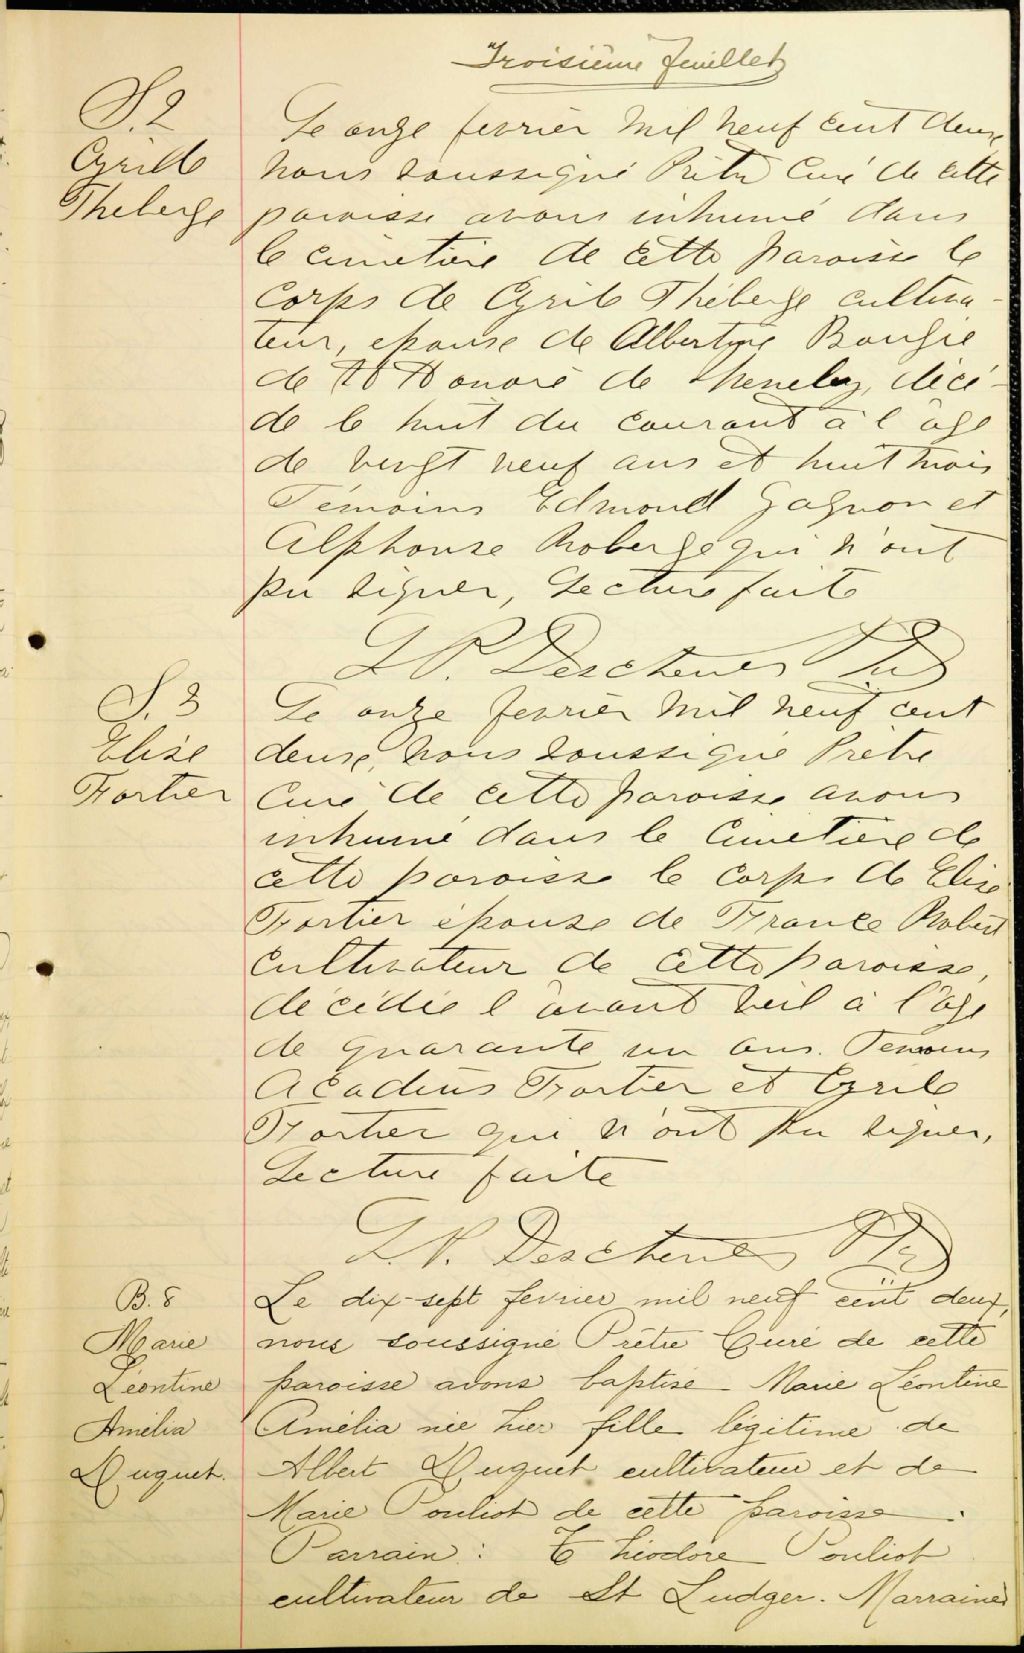 Troisième feuillet
S. 2
Cyrille
Theberge
Le onze fevrier mil neuf cent deux
nous soussigné Prêtre Curé de cette
paroisse avons inhumé dans
le cimetière de cette paroisse le
corps de Cyrile Théberge cultiva-
teur, epouse de Albertine Bougie
de St Honoré de Shenley, décé-
de le huit du courant à l'age
de vingt neuf ans et huit mois
Témoins Edmond Gagnon et
Alphonse Roberge qui n'ont
pu signer, Lecture faite
L. P. Deschenes Ptre
S. 3
Elise
Fortier
Le onze fevrier mil neuf cent
deux, nous soussigné Prêtre
Curé de cette paroisse avons
inhumé dans le cimetière de
cette paroisse le corps de Elise
Fortier épouse de France Robert
cultivateur de cette paroisse,
décédée l'avant veil à l'age
de quarante un ans. Temoins
Fortier et Cyrile
Fortier qui n'ont pu signer,
Lecture faite
L. P. Deschenes Ptre
B. 8
Marie
Léontine
Amélia
Duquet.
Le dix-sept fevrier mil neuf cent deux,
nous soussigné Prêtre Curé de cette
paroisse avons baptisé Marie Léontine
Amélia née hier fille légitime de
Albert Duquet cultivateur et de
Marie Pouliot de cette paroisse.
Parrain : Théodore Pouliot
cultivateur de St Ludger. Marraine